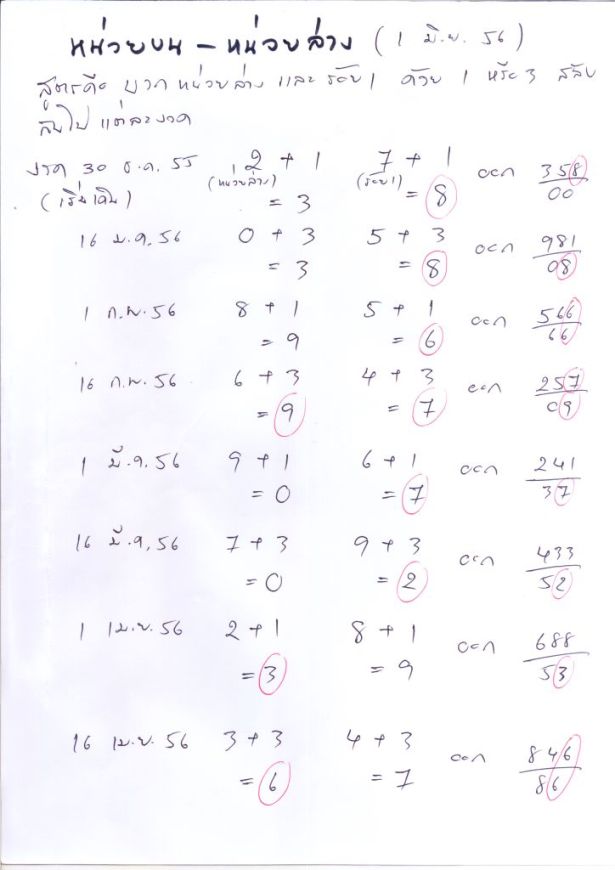 หน่วยบน - หน่วยล่าง (1 มิ.ย. 56)
สูตรคือ บวก หน่วยล่าง และ ร้อย 1 ด้วย 1 หรือ 3 สลับ
กันไป แต่ละงวด
งวด 30 ธ.ค. 55 2 + 1 7 + 1 ออก 358
(เริ่มเดิน) (หน่วยล่าง) (ร้อย 1) 00
= 3 = 8
16 ม.ค. 56 0 + 3 5 + 3 ออก 981
= 3 = 8 08
1 ก.พ. 56 8 + 1 5 + 1 ออก 566
= 9 = 6 66
16 ก.พ. 56 6 + 3 4 + 3 ออก 257
= 9 = 7 09
1 มี.ค. 56 9 + 1 6 + 1 ออก 241
= 0 = 7 37
16 มี.ค. 56 7 + 3 9 + 3 ออก 433
= 0 = 2 52
1 เม.ย. 56 2 + 1 8 + 1 ออก 688
= 3 = 9 53
16 เม.ย. 56 3 + 3 4 + 3 ออก 846
= 6 = 7 86